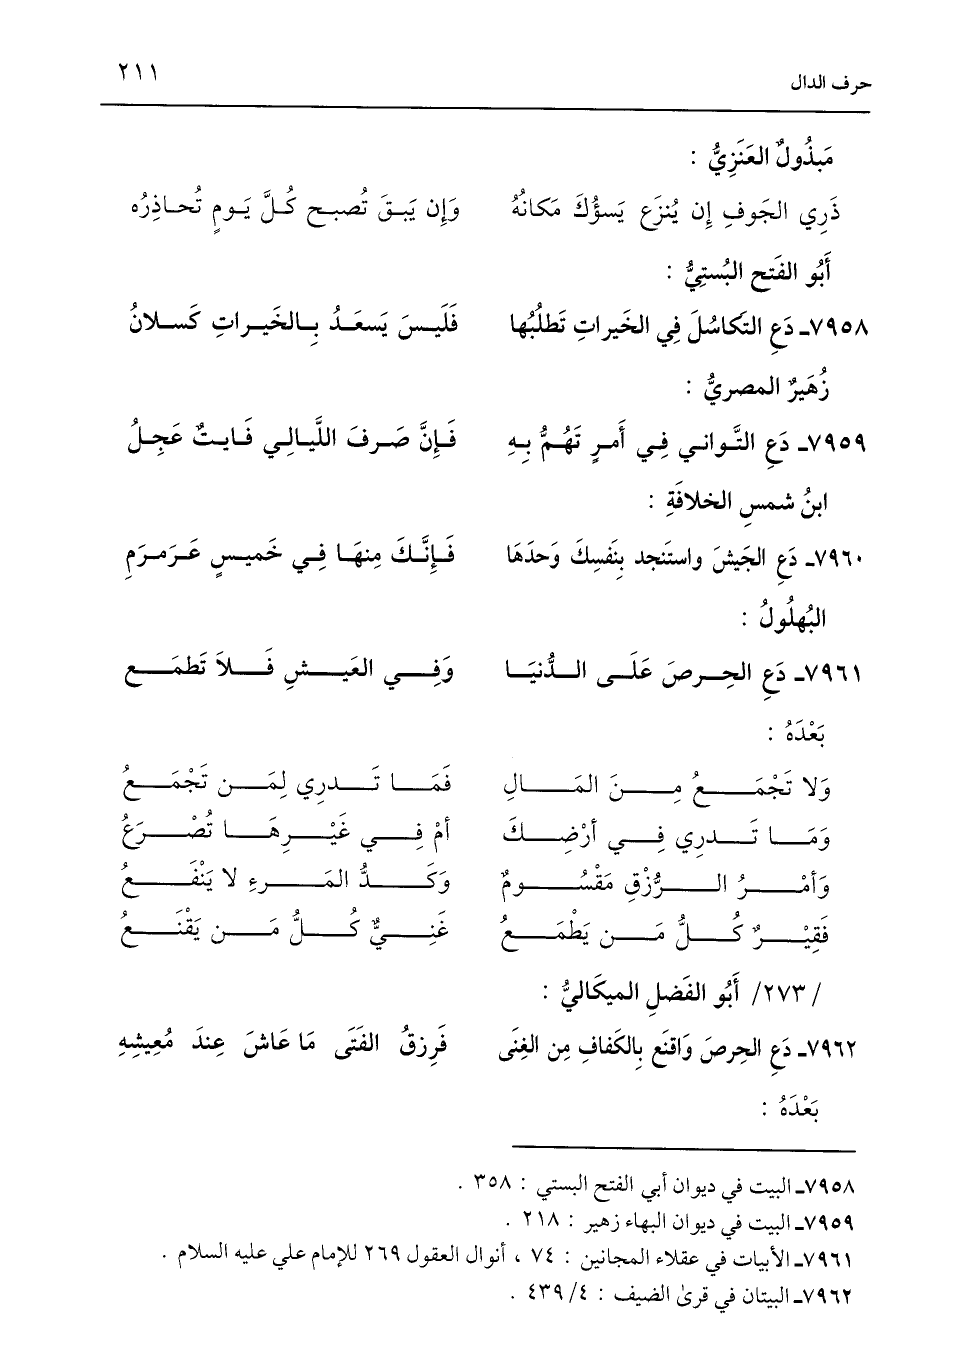 حرف الدال ٢١١
مَبذُولٌ العَنَزِيُّ :
ذَرِي الجَوفِ إِن يُنزَع يَسؤُكَ مَكانُهُ وَإِن يَبقَ تُصبح كُلَّ يَومٍ تُحاذِرُه
أَبُو الفَتح البُستِيُّ :
٧٩٥٨ـ دَعِ التَكاسُلَ فِي الخَيراتِ تَطلُبُها فَلَيسَ يَسعَدُ بِالخَيراتِ كَسلانُ
زُهَيرٌ المصريُّ :
٧٩٥٩ـ دَعِ التَّواني فِي أَمرٍ تَهُمُّ بِهِ فَإِنَّ صَرفَ اللَّيالِي فَايتٌ عَجِلُ
ابنُ شمسِ الخلافَةِ :
٧٩٦٠ـ دَعِ الجَيشَ واستَنجد بِنَفسِكَ وَحدَهَا فَإِنَّكَ مِنهَا فِي خَميسٍ عَرَمرَمِ
البُهلُولُ :
٧٩٦١ـ دَعِ الحِرصَ عَلَى الدُّنيَا وَفِي العَيشِ فَلاَ تَطمَع
بَعْدَهُ :
وَلا تَجْمَعُ مِنَ المَالِ فَمَا تَدرِي لِمَن تَجْمَعُ
وَمَا تَدرِي فِي أرْضِكَ أمْ فِي غَيْرِهَا تُصْرَعُ
وَأمْرُ الرُّزْقِ مَقْسُومٌ وَكَدُّ المَرءِ لا يَنْفَعُ
فَقِيْرٌ كُلُّ مَن يَطْمَعُ غَنِيٌّ كُلُّ مَن يَقْنَعُ
/٢٧٣/ أَبُو الفَضلِ الميكَاليُّ :
٧٩٦٢ـ دَعِ الحِرصَ وَاقنَع بِالكَفافِ مِن الغِنَى فَرِزقُ الفَتَى مَا عَاشَ عِندَ مُعِيشِهِ
بَعْدَهُ :
٧٩٥٨ـ البيت في ديوان أبي الفتح البستي : ٣٥٨ .
٧٩٥٩ـ البيت في ديوان البهاء زهير : ٢١٨ .
٧٩٦١ـ الأبيات في عقلاء المجانين : ٧٤ ، أنوال العقول ٢٦٩ للإمام علي عليه السلام .
٧٩٦٢ـ البيتان في قرىٰ الضيف : ٤/ ٤٣٩ .